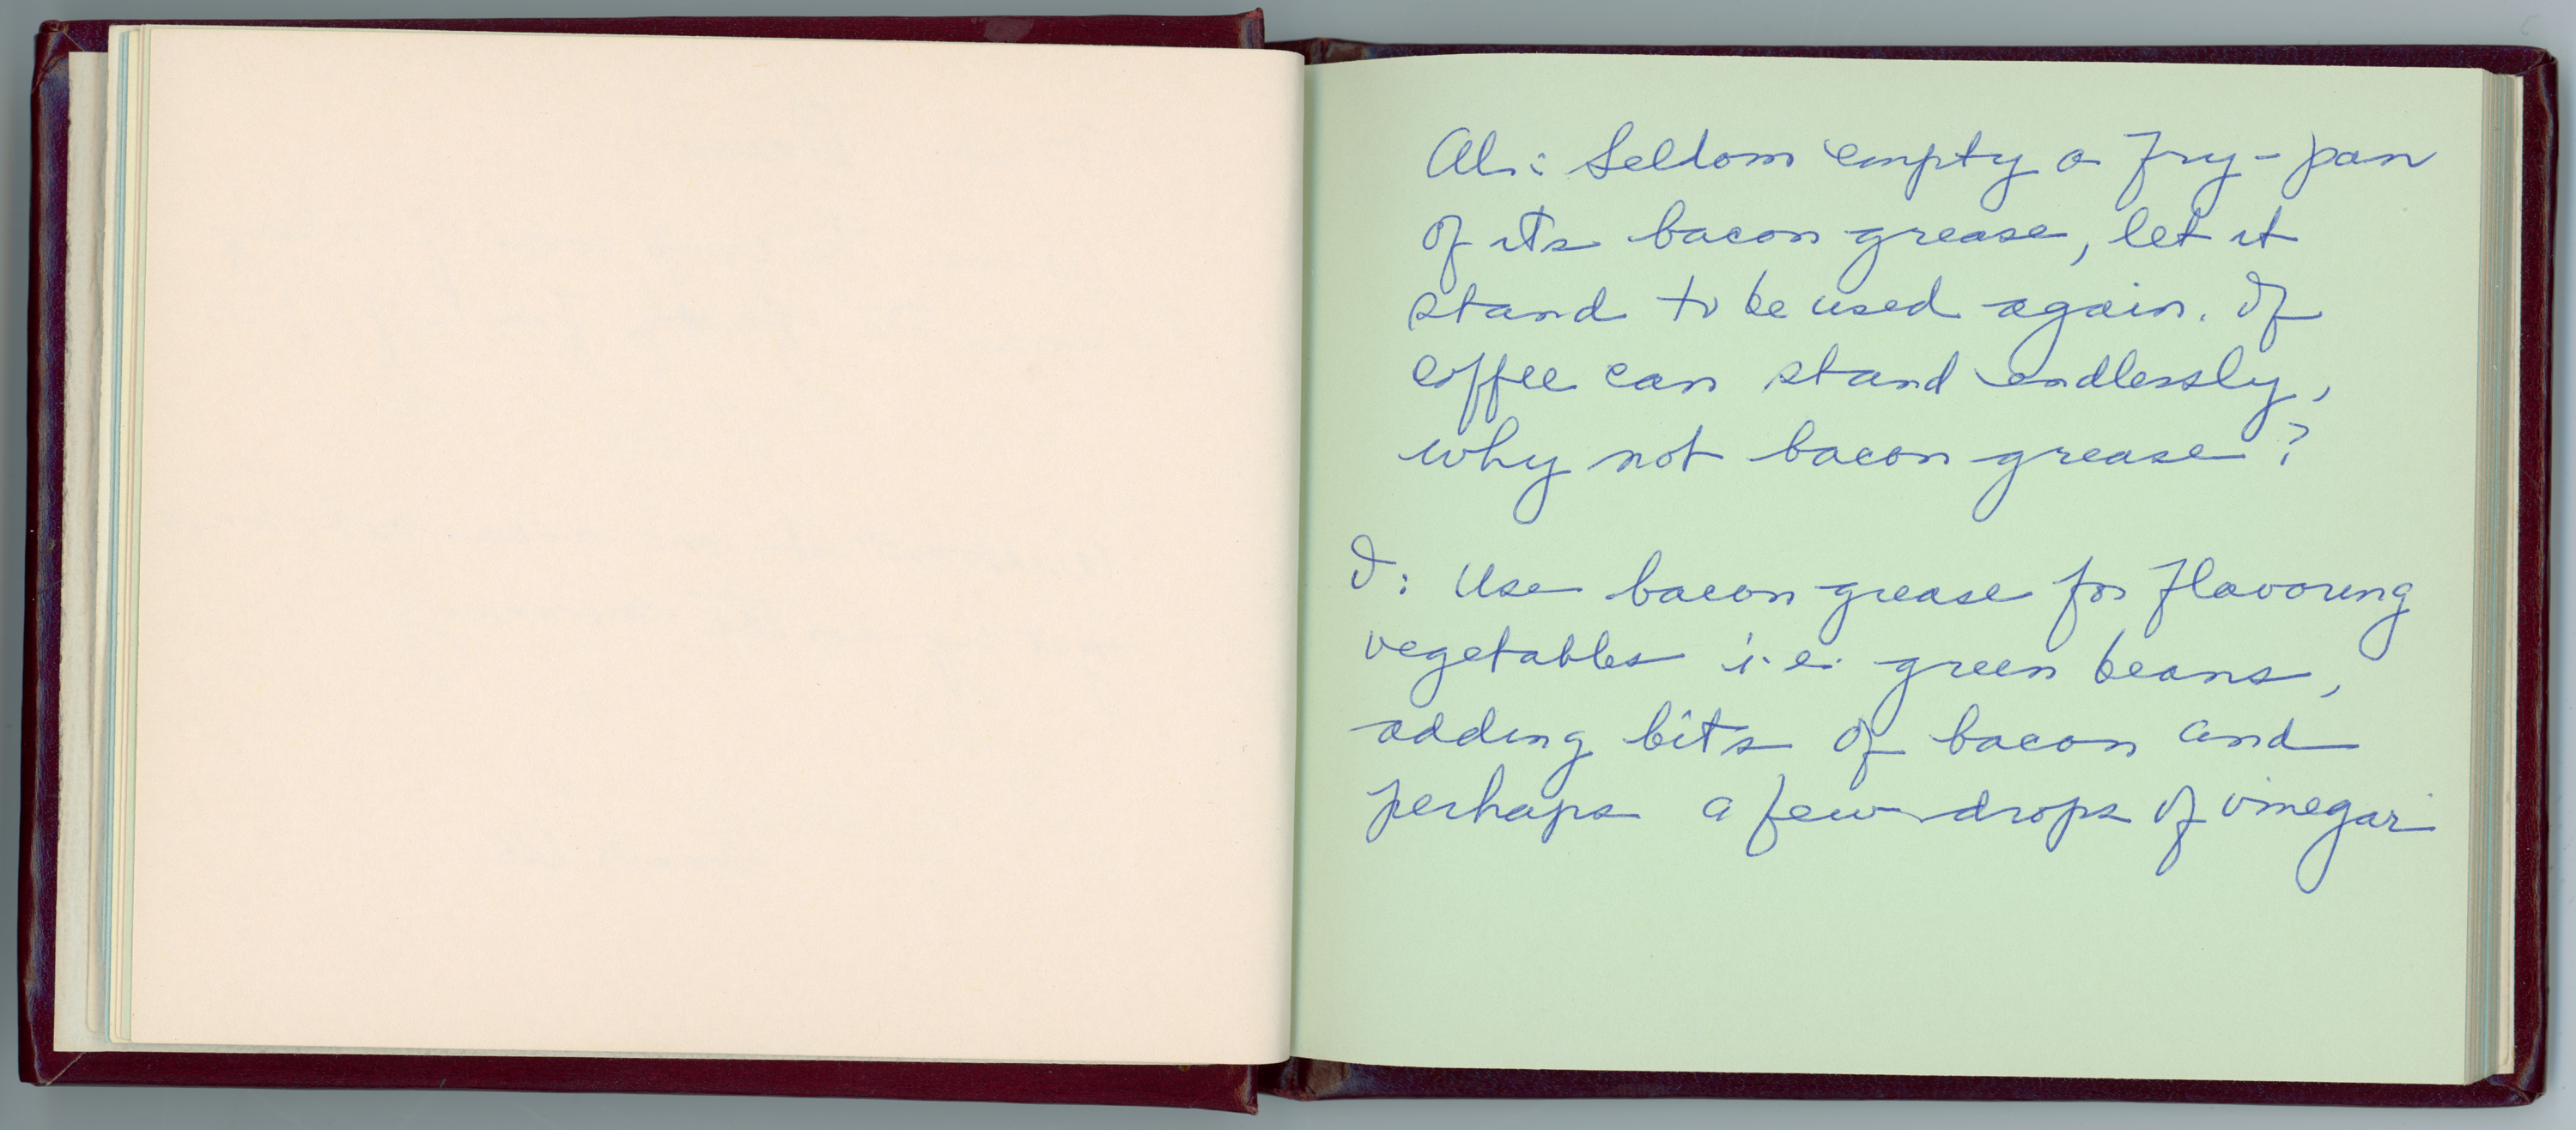 Al.: Seldom empty a fry-pan
of its bacon grease, let it
stand to be used again. If
coffee can stand endlessly,
why not bacon grease?
I: Use bacon grease for flavoring
vegetables i.e. green beans,
adding bits of bacon and
perhaps a few drops of vinegar